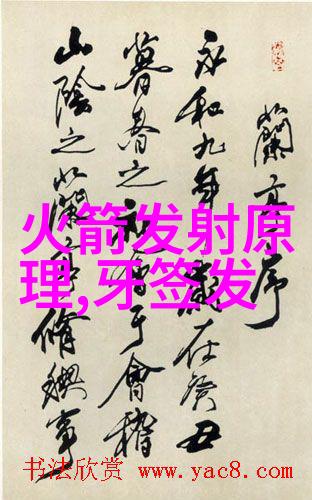 蘭亭序
永和九年歲在癸丑
暮春之初會于會稽
山陰之蘭亭脩禊事
火箭发射原
理,牙签发
书法欣赏 www.yac8.com